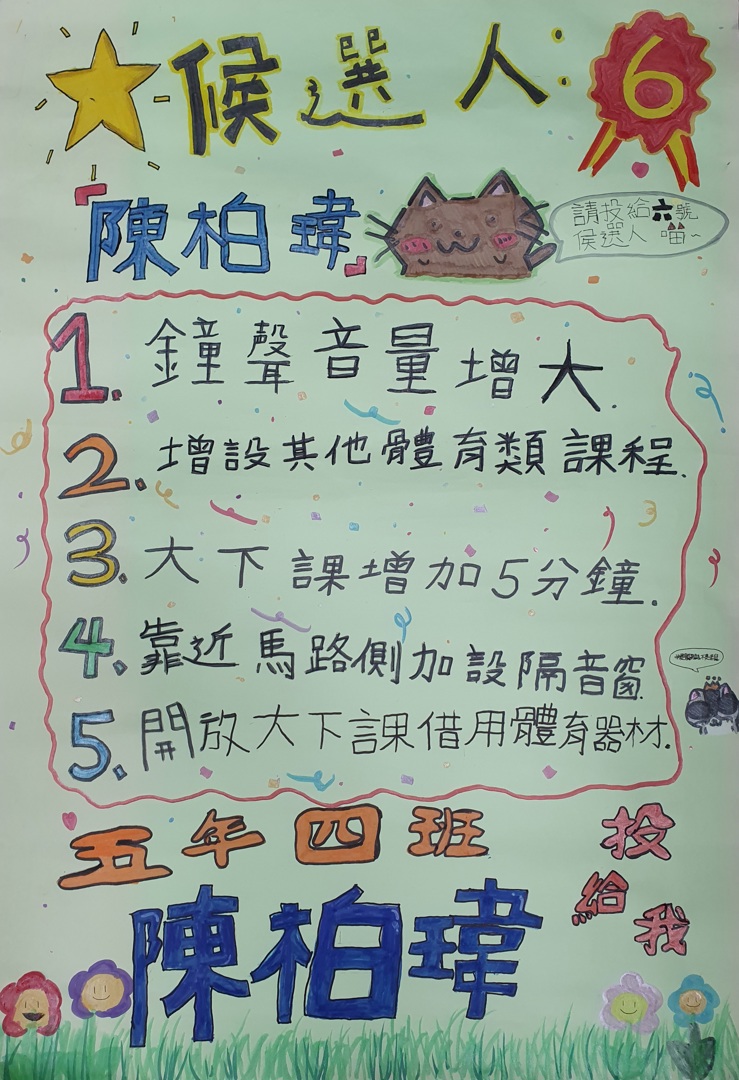 候選人:
6
陳柏瑋
請投給六號
侯選人 喵~
1. 鐘聲音量增大.
2. 增設其他體育類課程.
3. 大下課增加5分鐘.
4. 靠近馬路側加設隔音窗.
5. 開放大下課借用體育器材.
五年四班
投給我
陳柏瑋